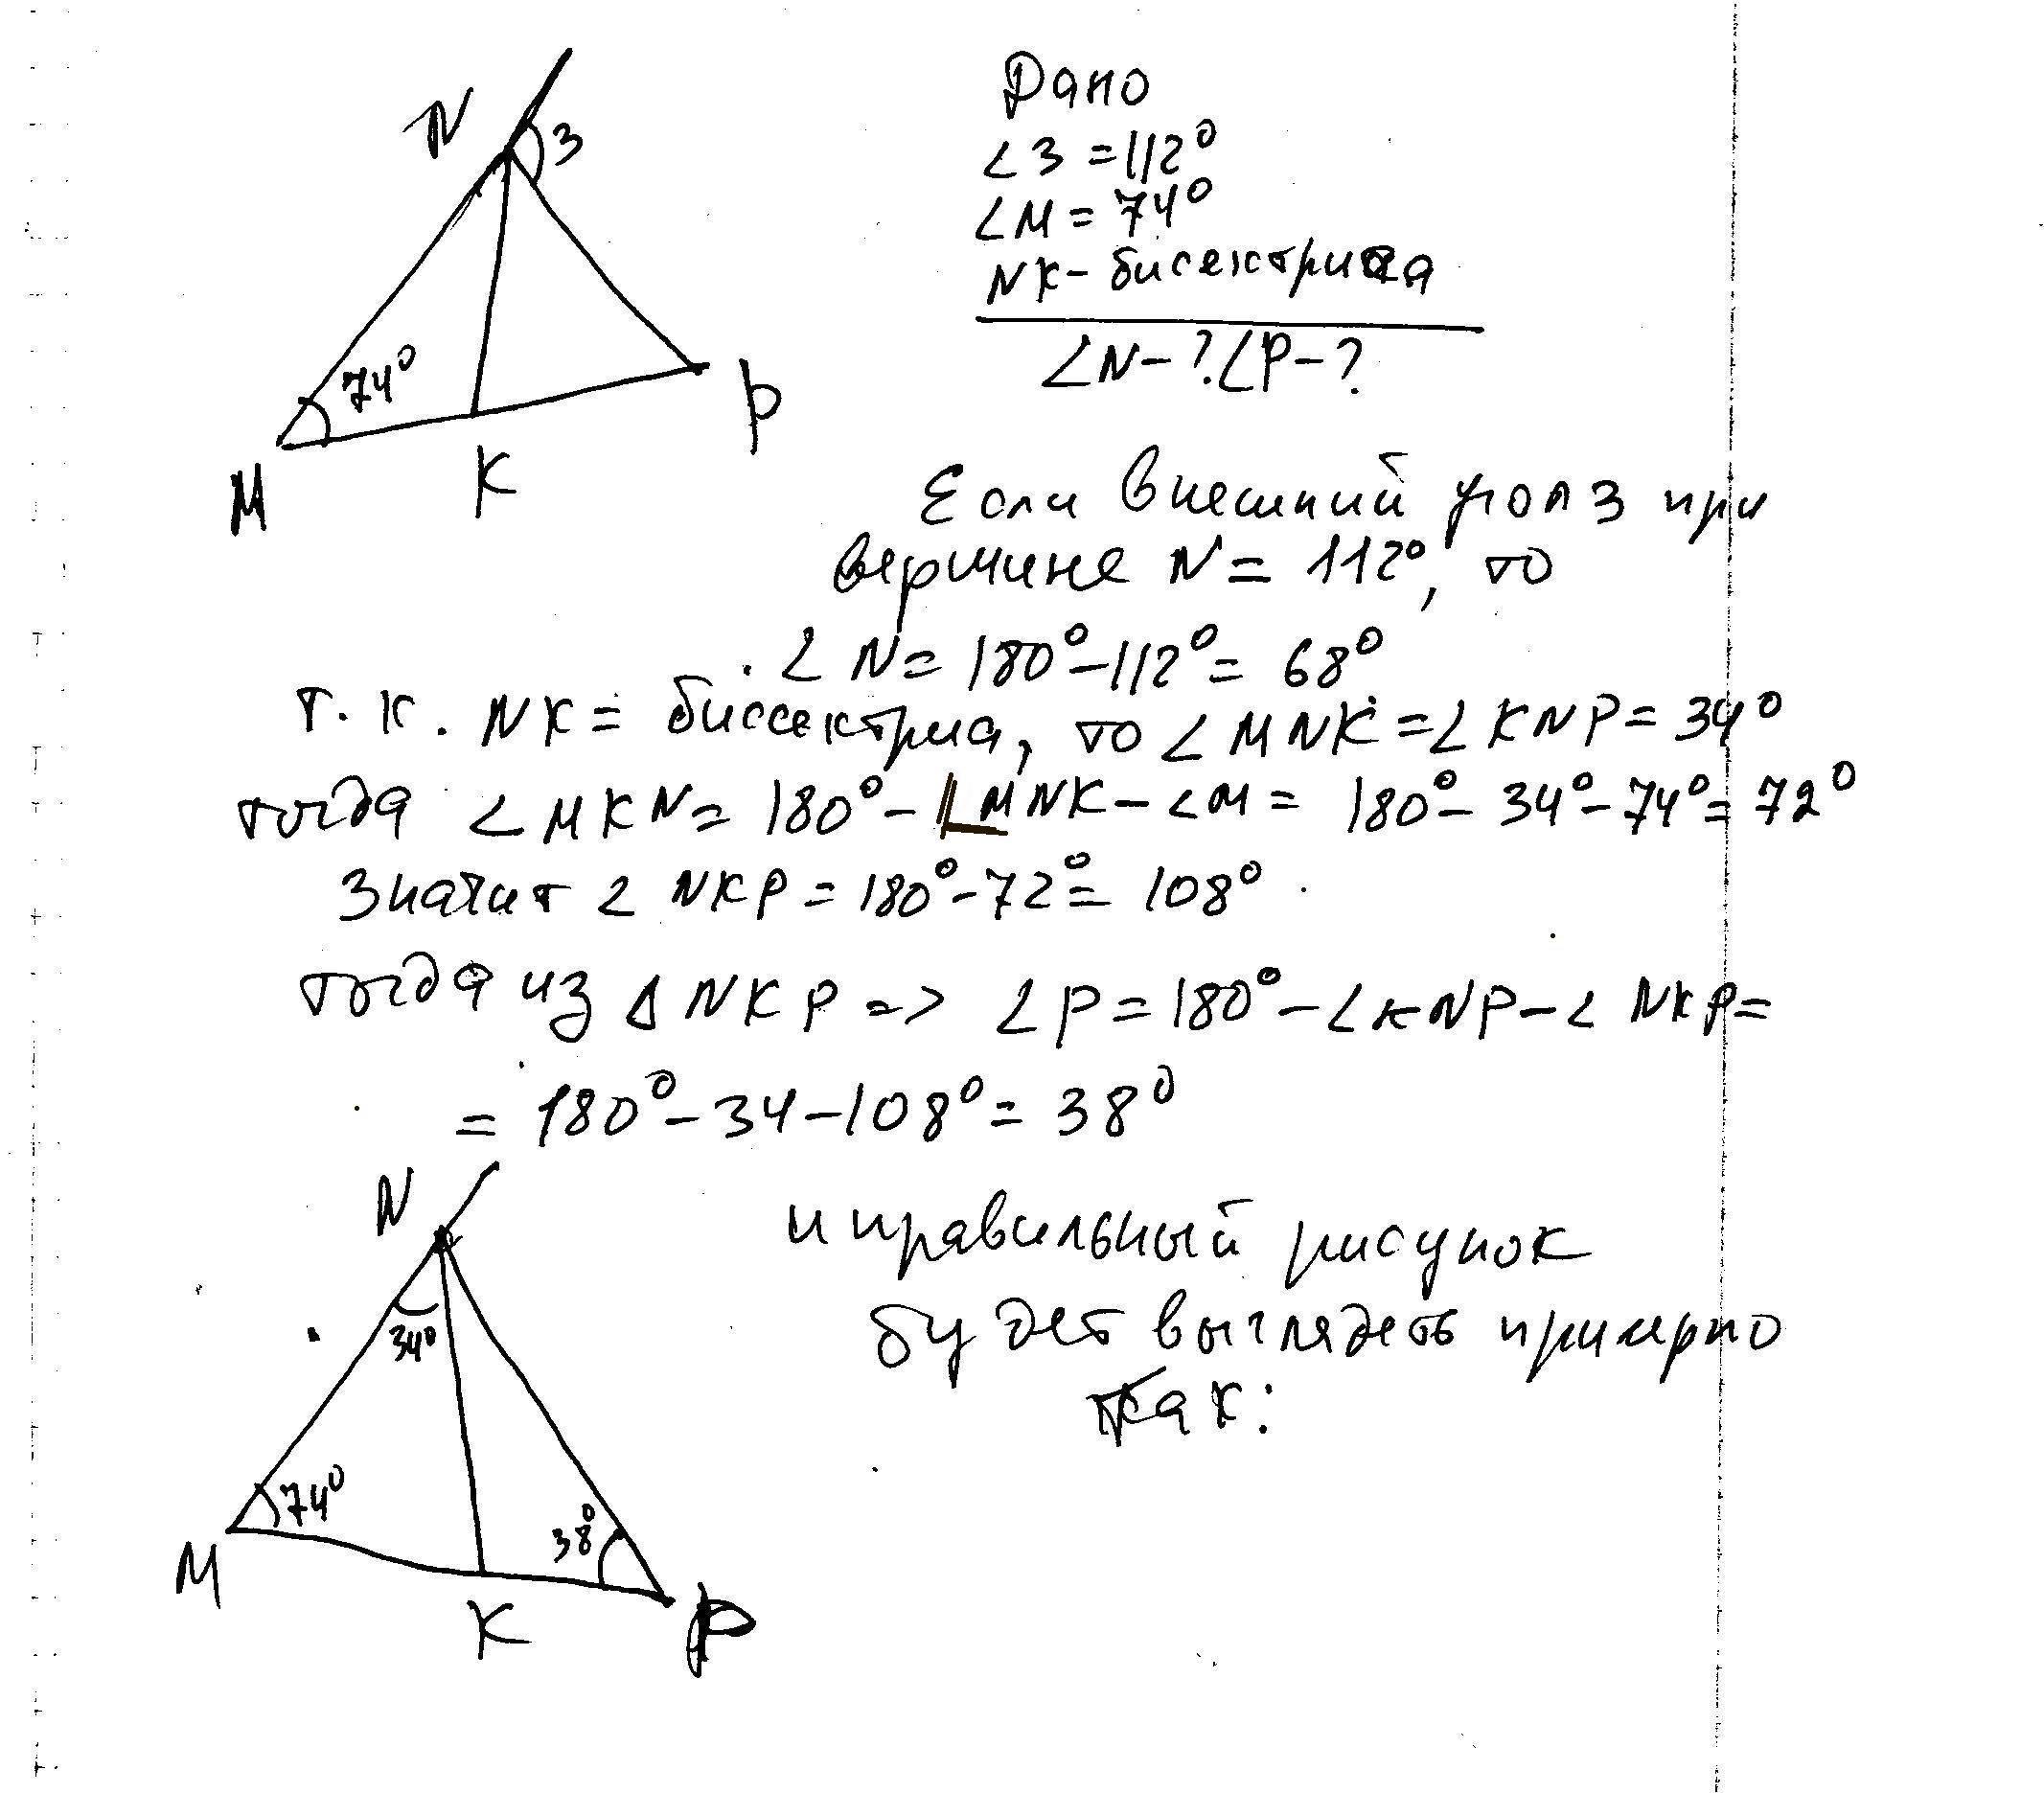 N
3
74°
M
K
P
Дано
∠3 = 112°
∠M = 74°
NK - бисектриса
∠N - ? ∠P - ?
Если внешний угол 3 при
вершине N = 112°, то
∠N = 180° - 112° = 68°
т. к. NK = биссектриса, то ∠MNK = ∠KNP = 34°
тогда ∠MKN = 180° - ∠MNK - ∠M = 180° - 34° - 74° = 72°
значит ∠NKP = 180° - 72° = 108°
тогда из Δ NKP => ∠P = 180° - ∠KNP - ∠NKP =
= 180° - 34 - 108° = 38°
и правильный рисунок
будет выглядеть примерно
так:
N
34°
74°
38°
M
K
P